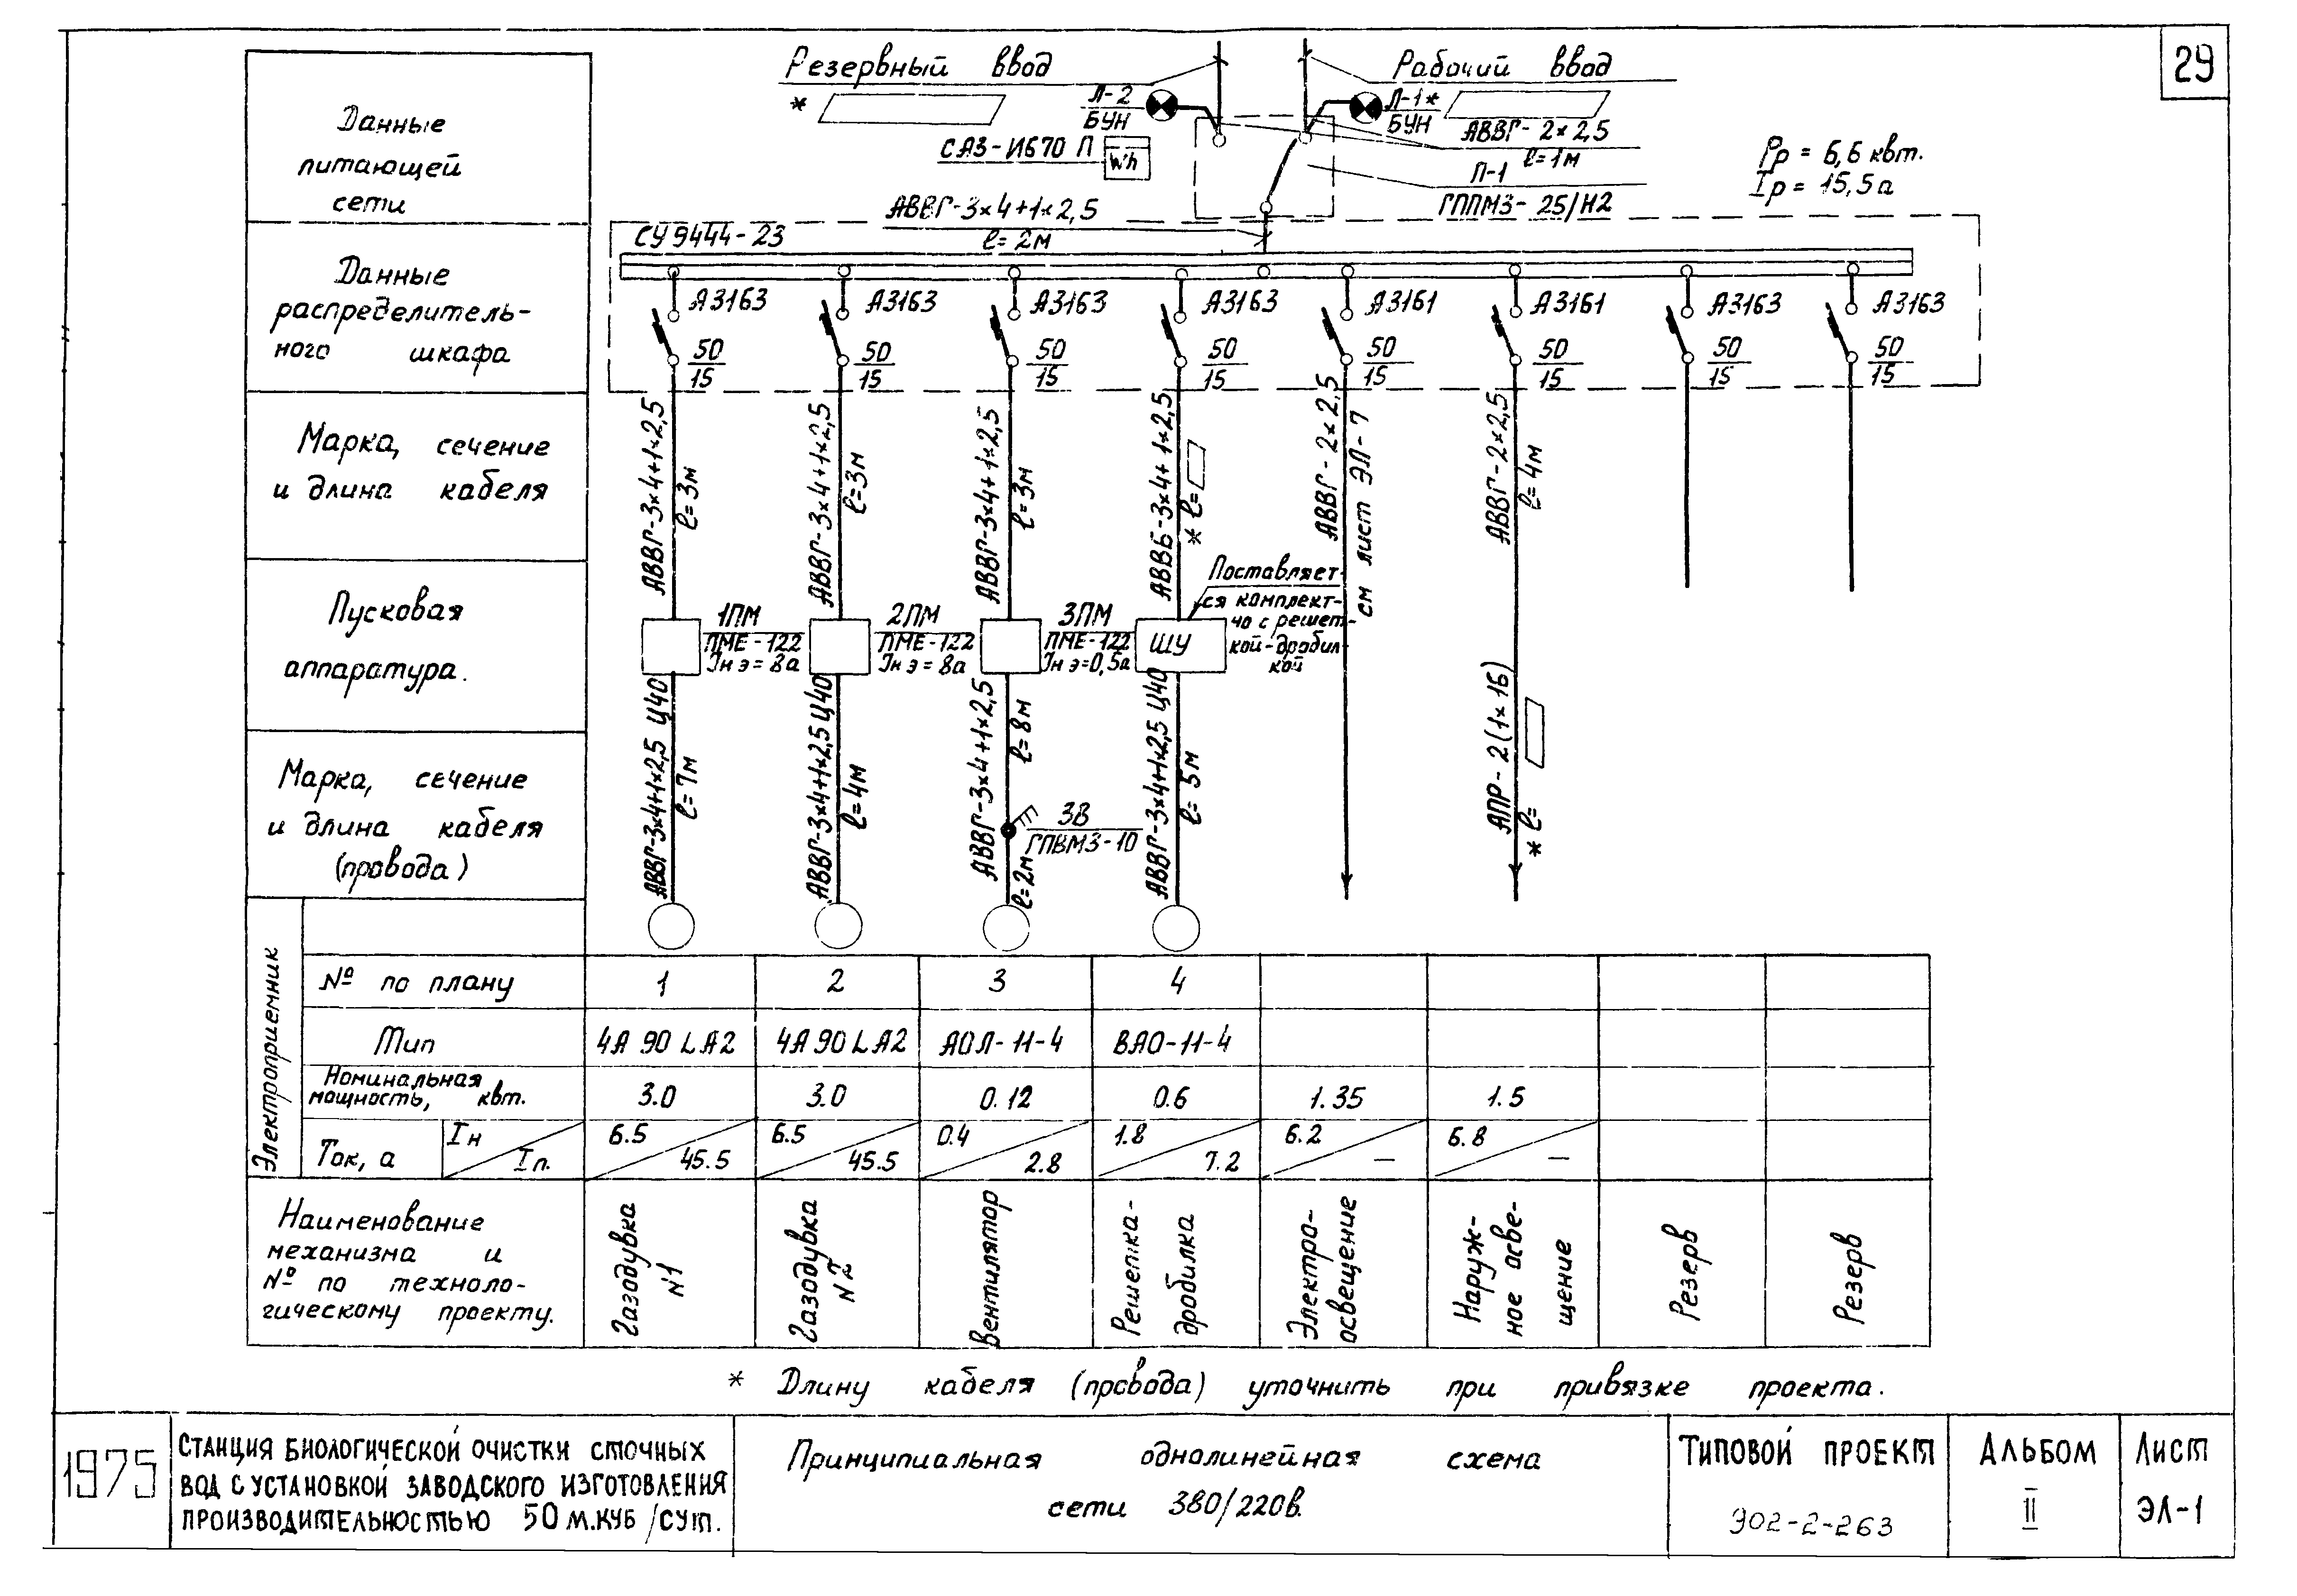 29
Резервный ввод
Рабочий ввод
*
Л-2
БУН
Л-1*
БУН
АВВГ-2×2,5
ℓ=1м
СА3-И670 П
Wh
П-1
ГППМ3-25/Н2
Рр = 6,6 квт.
Iр = 15,5а
АВВГ-3×4+1×2,5
ℓ=2м
Данные
питающей
сети
Данные
распределитель-
ного шкафа
СУ9444-23
А3163
А3163
А3163
А3163
А3161
А3161
А3163
А3163
50
15
50
15
50
15
50
15
50
15
50
15
50
15
50
15
Марка, сечение
и длина кабеля
АВВГ-3×4+1×2,5
ℓ=3м
АВВГ-3×4+1×2,5
ℓ=3м
АВВГ-3×4+1×2,5
ℓ=3м
АВВБ-3×4+1×2,5
* ℓ=
АВВГ-2×2,5
см лист ЭЛ-7
АВВГ-2×2,5
ℓ=4м
Пусковая
аппаратура.
1ПМ
ПМЕ-122
Iн э=8а
2ПМ
ПМЕ-122
Iн э=8а
3ПМ
ПМЕ-122
Iн э=0,5а
ШУ
Поставляет-
ся комплект-
но с решет-
кой-дробил-
кой
Марка, сечение
и длина кабеля
(провода)
АВВГ-3×4+1×2,5 Ц40
ℓ=7м
АВВГ-3×4+1×2,5 Ц40
ℓ=4м
АВВГ-3×4+1×2,5
ℓ=8м
3В
ГПВМ3-10
ℓ=2м
АВВГ-3×4+1×2,5 Ц40
ℓ=5м
АПР-2(1×16)
* ℓ=
Электроприемник
№ по плану 1 2 3 4
Тип 4А 90 LА2 4А 90 LА2 АОЛ-11-4 ВАО-11-4
Номинальная
мощность, квт. 3.0 3.0 0.12 0.6 1.35 1.5
Ток, а Iн 6.5 6.5 0.4 1.8 6.2 6.8
Iп. 45.5 45.5 2.8 7.2 — —
Наименование
механизма и
№ по техноло-
гическому проекту.
Газодувка
N1
Газодувка
N2
Вентилятор
Решетка-
дробилка
Электро-
освещение
Наруж-
ное осве-
щение
Резерв
Резерв
* Длину кабеля (провода) уточнить при привязке проекта.
1975
СТАНЦИЯ БИОЛОГИЧЕСКОЙ ОЧИСТКИ СТОЧНЫХ
ВОД С УСТАНОВКОЙ ЗАВОДСКОГО ИЗГОТОВЛЕНИЯ
ПРОИЗВОДИТЕЛЬНОСТЬЮ 50 М.КУБ/СУТ.
Принципиальная однолинейная схема
сети 380/220в.
ТИПОВОЙ ПРОЕКТ
902-2-263
АЛЬБОМ
II
ЛИСТ
ЭЛ-1